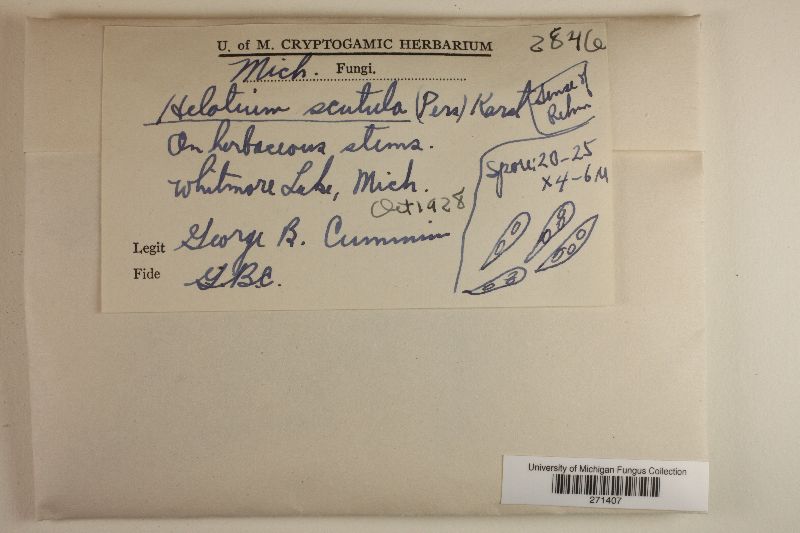 U. of M. CRYPTOGAMIC HERBARIUM
2846
Mich. Fungi.
Helotium scutula (Pers) Karst
Sense of
Rehm
On herbaceous stems.
Whitmore Lake, Mich.
Oct 1928
Spore: 20-25
x 4-6 µ
Legit George B. Cummin
Fide G.B.C.
University of Michigan Fungus Collection
271407